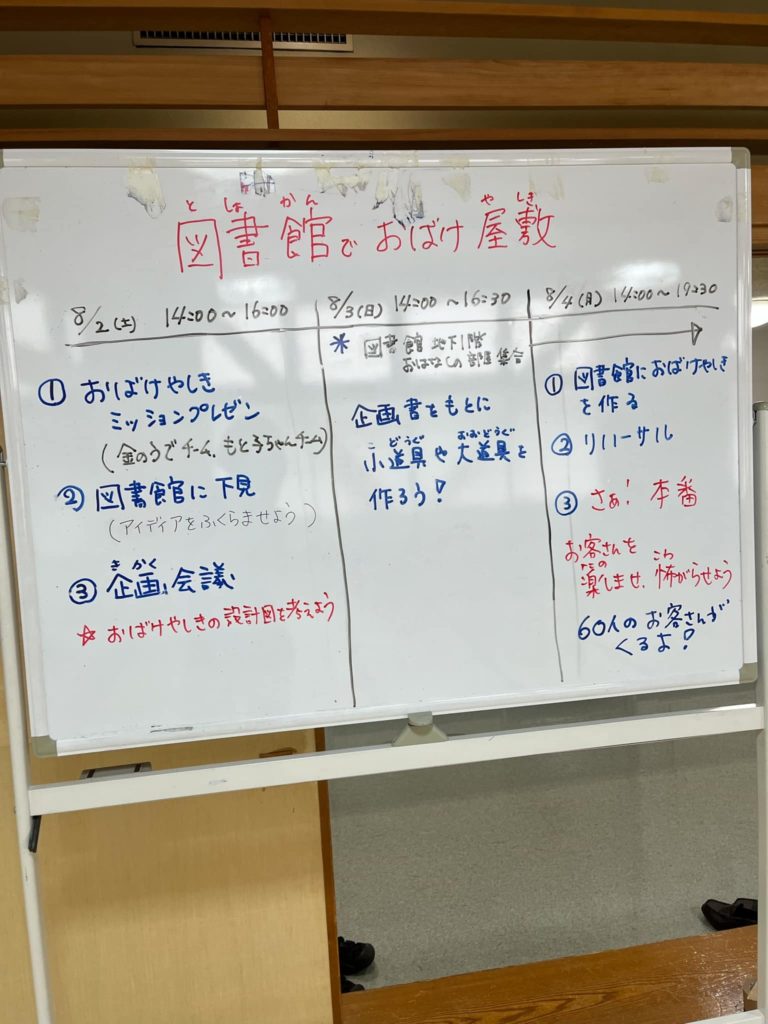 と しょ かん や しき
図書館でおばけ屋敷
8/2(土) 14:00～16:00
① おばけやしき
ミッションプレゼン
(金のうでチーム、もと子ちゃんチーム)
② 図書館に下見
(アイディアをふくらませよう)
き かく
③ 企画会議
☆ おばけやしきの設計図を考えよう
8/3(日) 14:00～16:30
* 図書館 地下1階
おはなしの部屋 集合
企画書をもとに
こ どうぐ おおどうぐ
小道具や大道具を
作ろう!
8/4(月) 14:00～19:30
① 図書館におばけやしき
を作る
② リハーサル
③ さぁ! 本番
お客さんを
たの こわ
楽しませ、怖がらせよう
60人のお客さんが
くるよ!